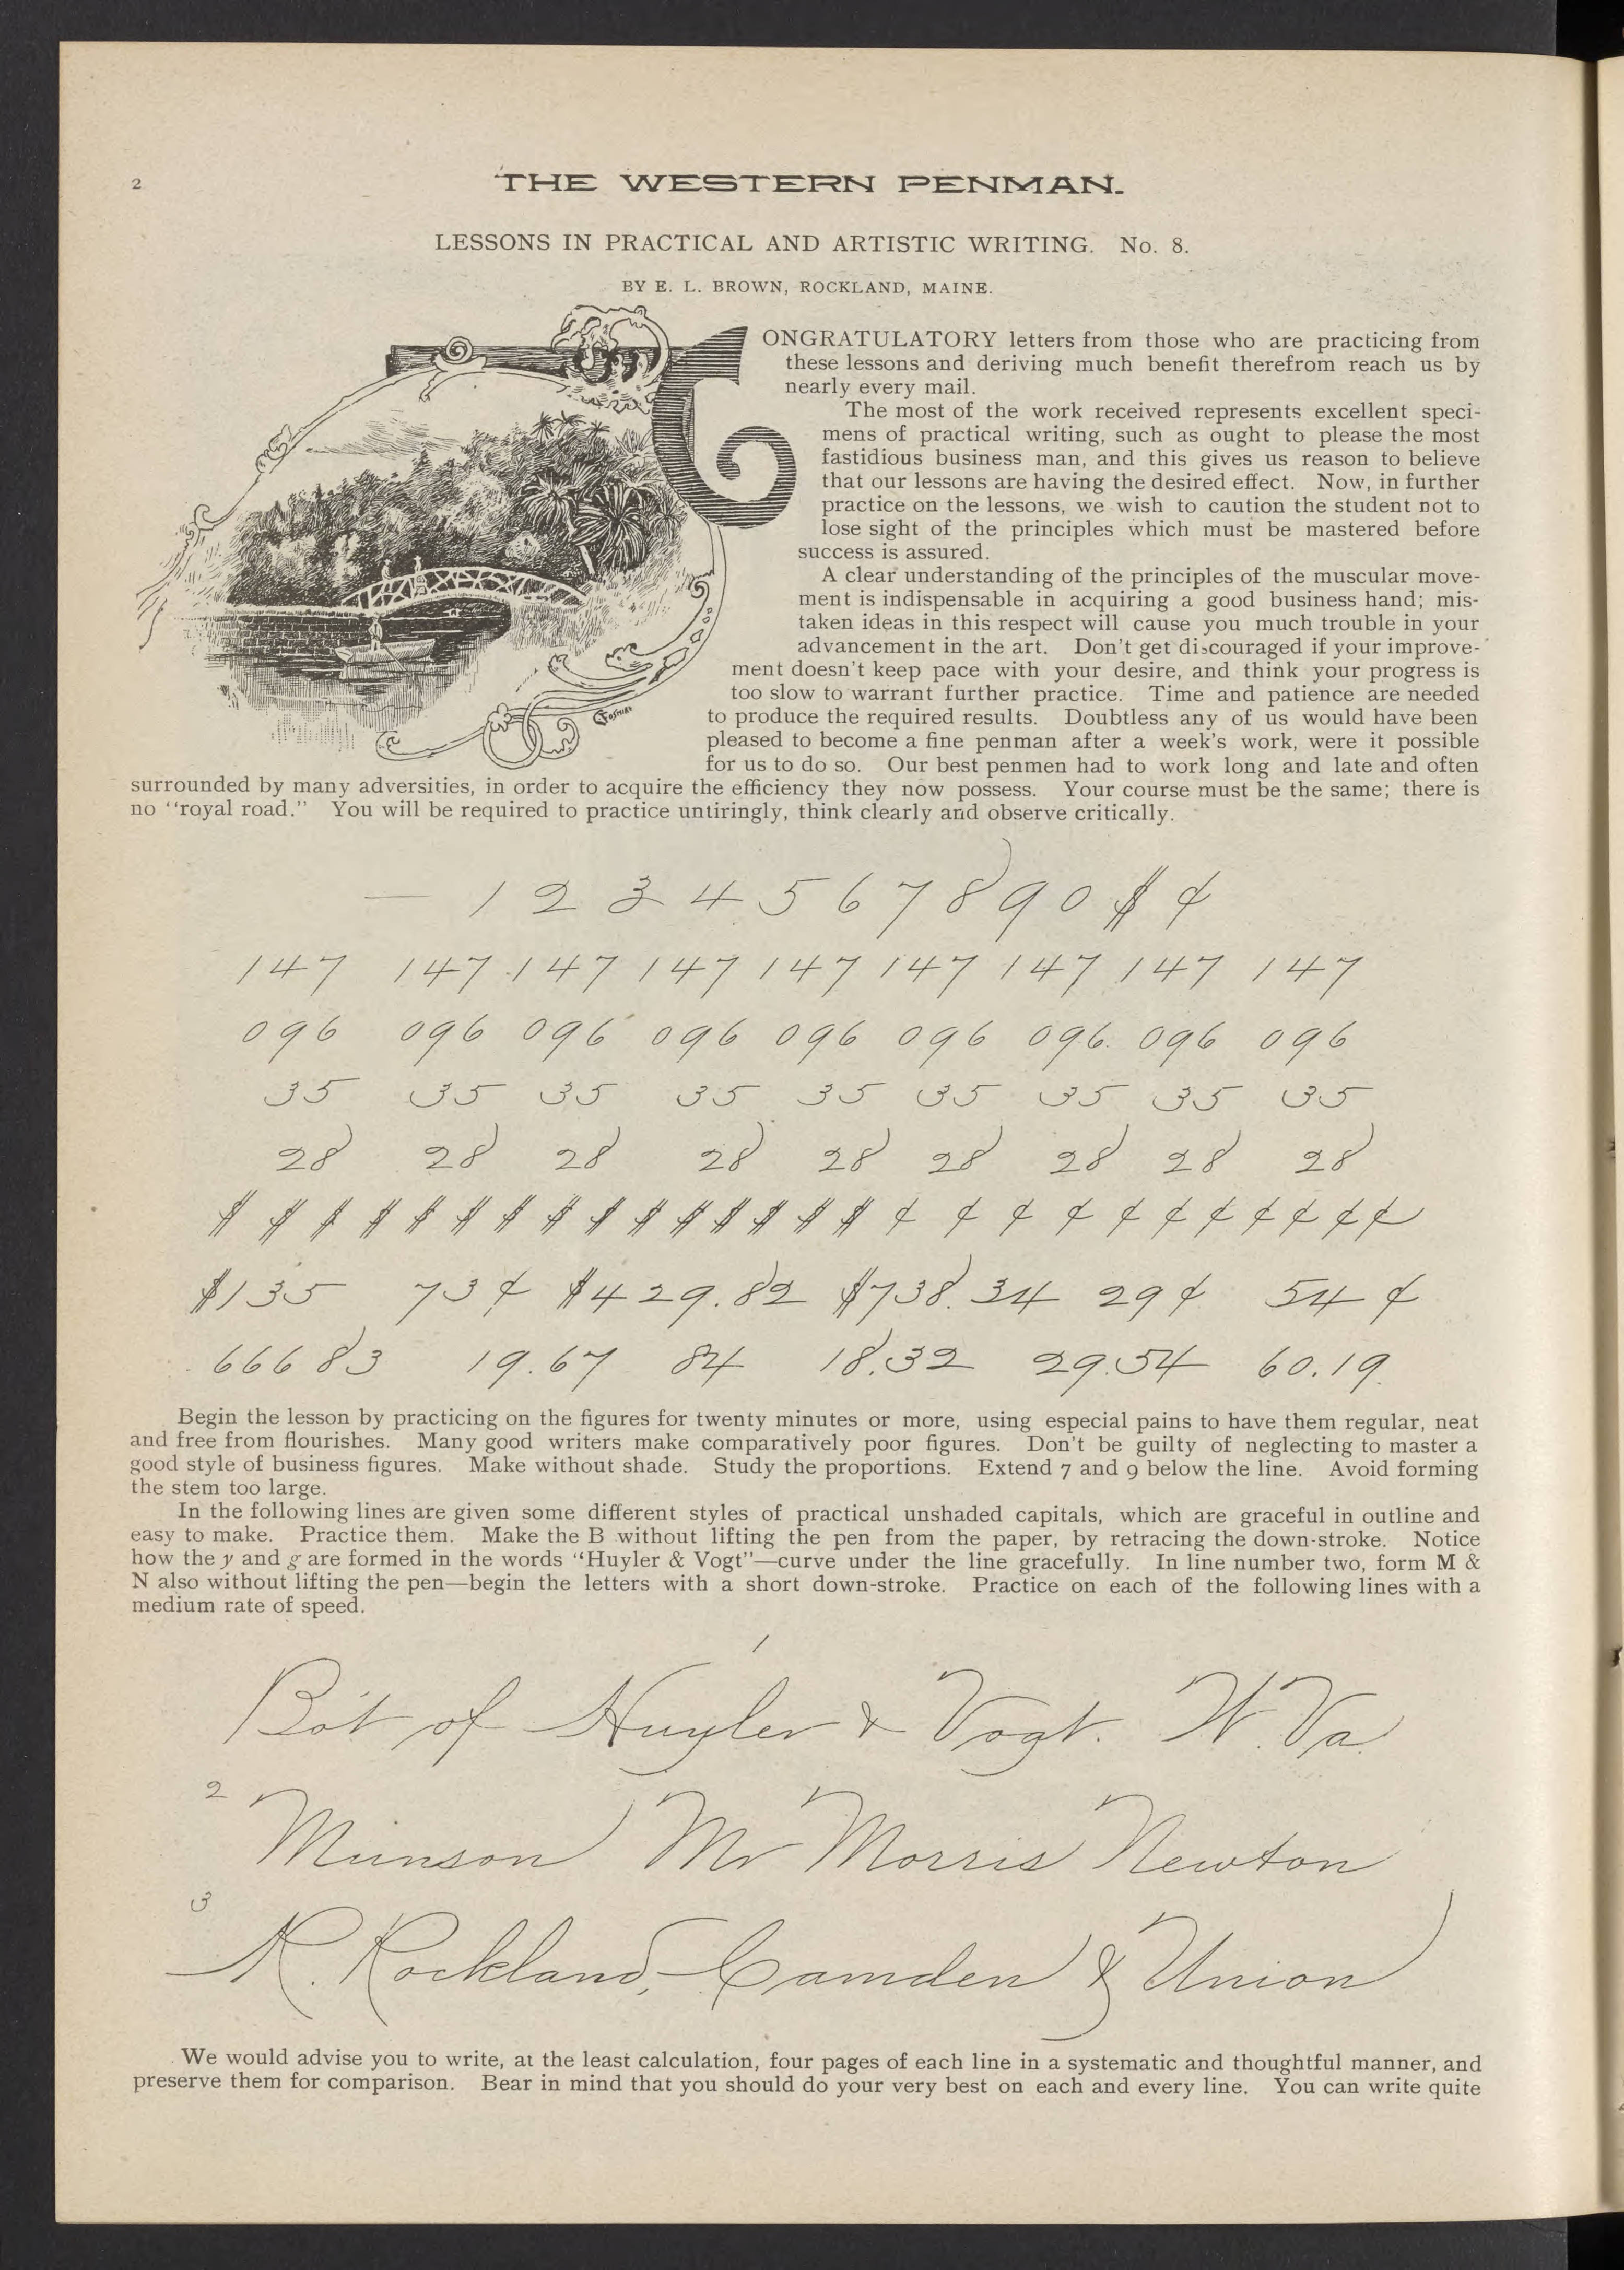 2
THE WESTERN PENMAN.
LESSONS IN PRACTICAL AND ARTISTIC WRITING. No. 8.
BY E. L. BROWN, ROCKLAND, MAINE.
CONGRATULATORY letters from those who are practicing from
these lessons and deriving much benefit therefrom reach us by
nearly every mail.
The most of the work received represents excellent speci-
mens of practical writing, such as ought to please the most
fastidious business man, and this gives us reason to believe
that our lessons are having the desired effect. Now, in further
practice on the lessons, we wish to caution the student not to
lose sight of the principles which must be mastered before
success is assured.
A clear understanding of the principles of the muscular move-
ment is indispensable in acquiring a good business hand; mis-
taken ideas in this respect will cause you much trouble in your
advancement in the art. Don't get discouraged if your improve-
ment doesn't keep pace with your desire, and think your progress is
too slow to warrant further practice. Time and patience are needed
to produce the required results. Doubtless any of us would have been
pleased to become a fine penman after a week's work, were it possible
for us to do so. Our best penmen had to work long and late and often
surrounded by many adversities, in order to acquire the efficiency they now possess. Your course must be the same; there is
no "royal road." You will be required to practice untiringly, think clearly and observe critically.
— 1 2 3 4 5 6 7 8 9 0 $ ¢
147 147 147 147 147 147 147 147 147
096 096 096 096 096 096 096 096 096
35 35 35 35 35 35 35 35 35
28 28 28 28 28 28 28 28 28
$ $ $ $ $ $ $ $ $ $ $ $ $ $ $ ¢ ¢ ¢ ¢ ¢ ¢ ¢ ¢ ¢ ¢ ¢
$135 73¢ $429.82 $738.34 29¢ 54¢
66683 19.67 84 18.32 29.54 60.19.
Begin the lesson by practicing on the figures for twenty minutes or more, using especial pains to have them regular, neat
and free from flourishes. Many good writers make comparatively poor figures. Don't be guilty of neglecting to master a
good style of business figures. Make without shade. Study the proportions. Extend 7 and 9 below the line. Avoid forming
the stem too large.
In the following lines are given some different styles of practical unshaded capitals, which are graceful in outline and
easy to make. Practice them. Make the B without lifting the pen from the paper, by retracing the down-stroke. Notice
how the y and g are formed in the words "Huyler & Vogt"—curve under the line gracefully. In line number two, form M &
N also without lifting the pen—begin the letters with a short down-stroke. Practice on each of the following lines with a
medium rate of speed.
1
Bo't of Huyler & Vogt. W. Va.
2
Munson Mr Morris Newton
3
R. Rockland, Camden & Union
We would advise you to write, at the least calculation, four pages of each line in a systematic and thoughtful manner, and
preserve them for comparison. Bear in mind that you should do your very best on each and every line. You can write quite